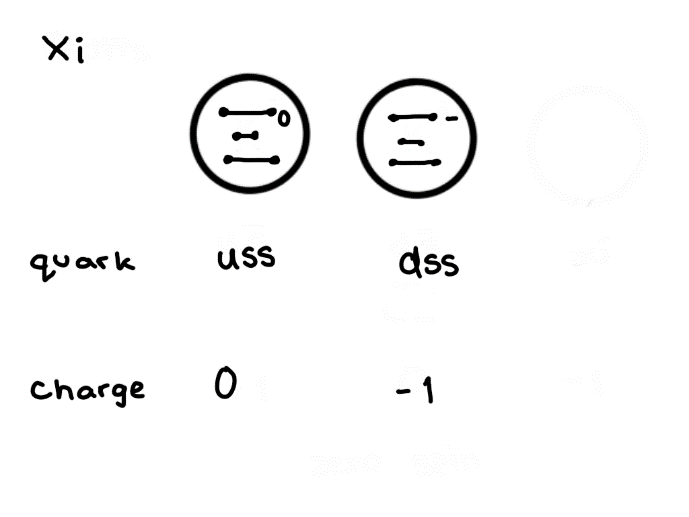 Xi
Ξ⁰ Ξ⁻
quark uss dss
charge 0 -1